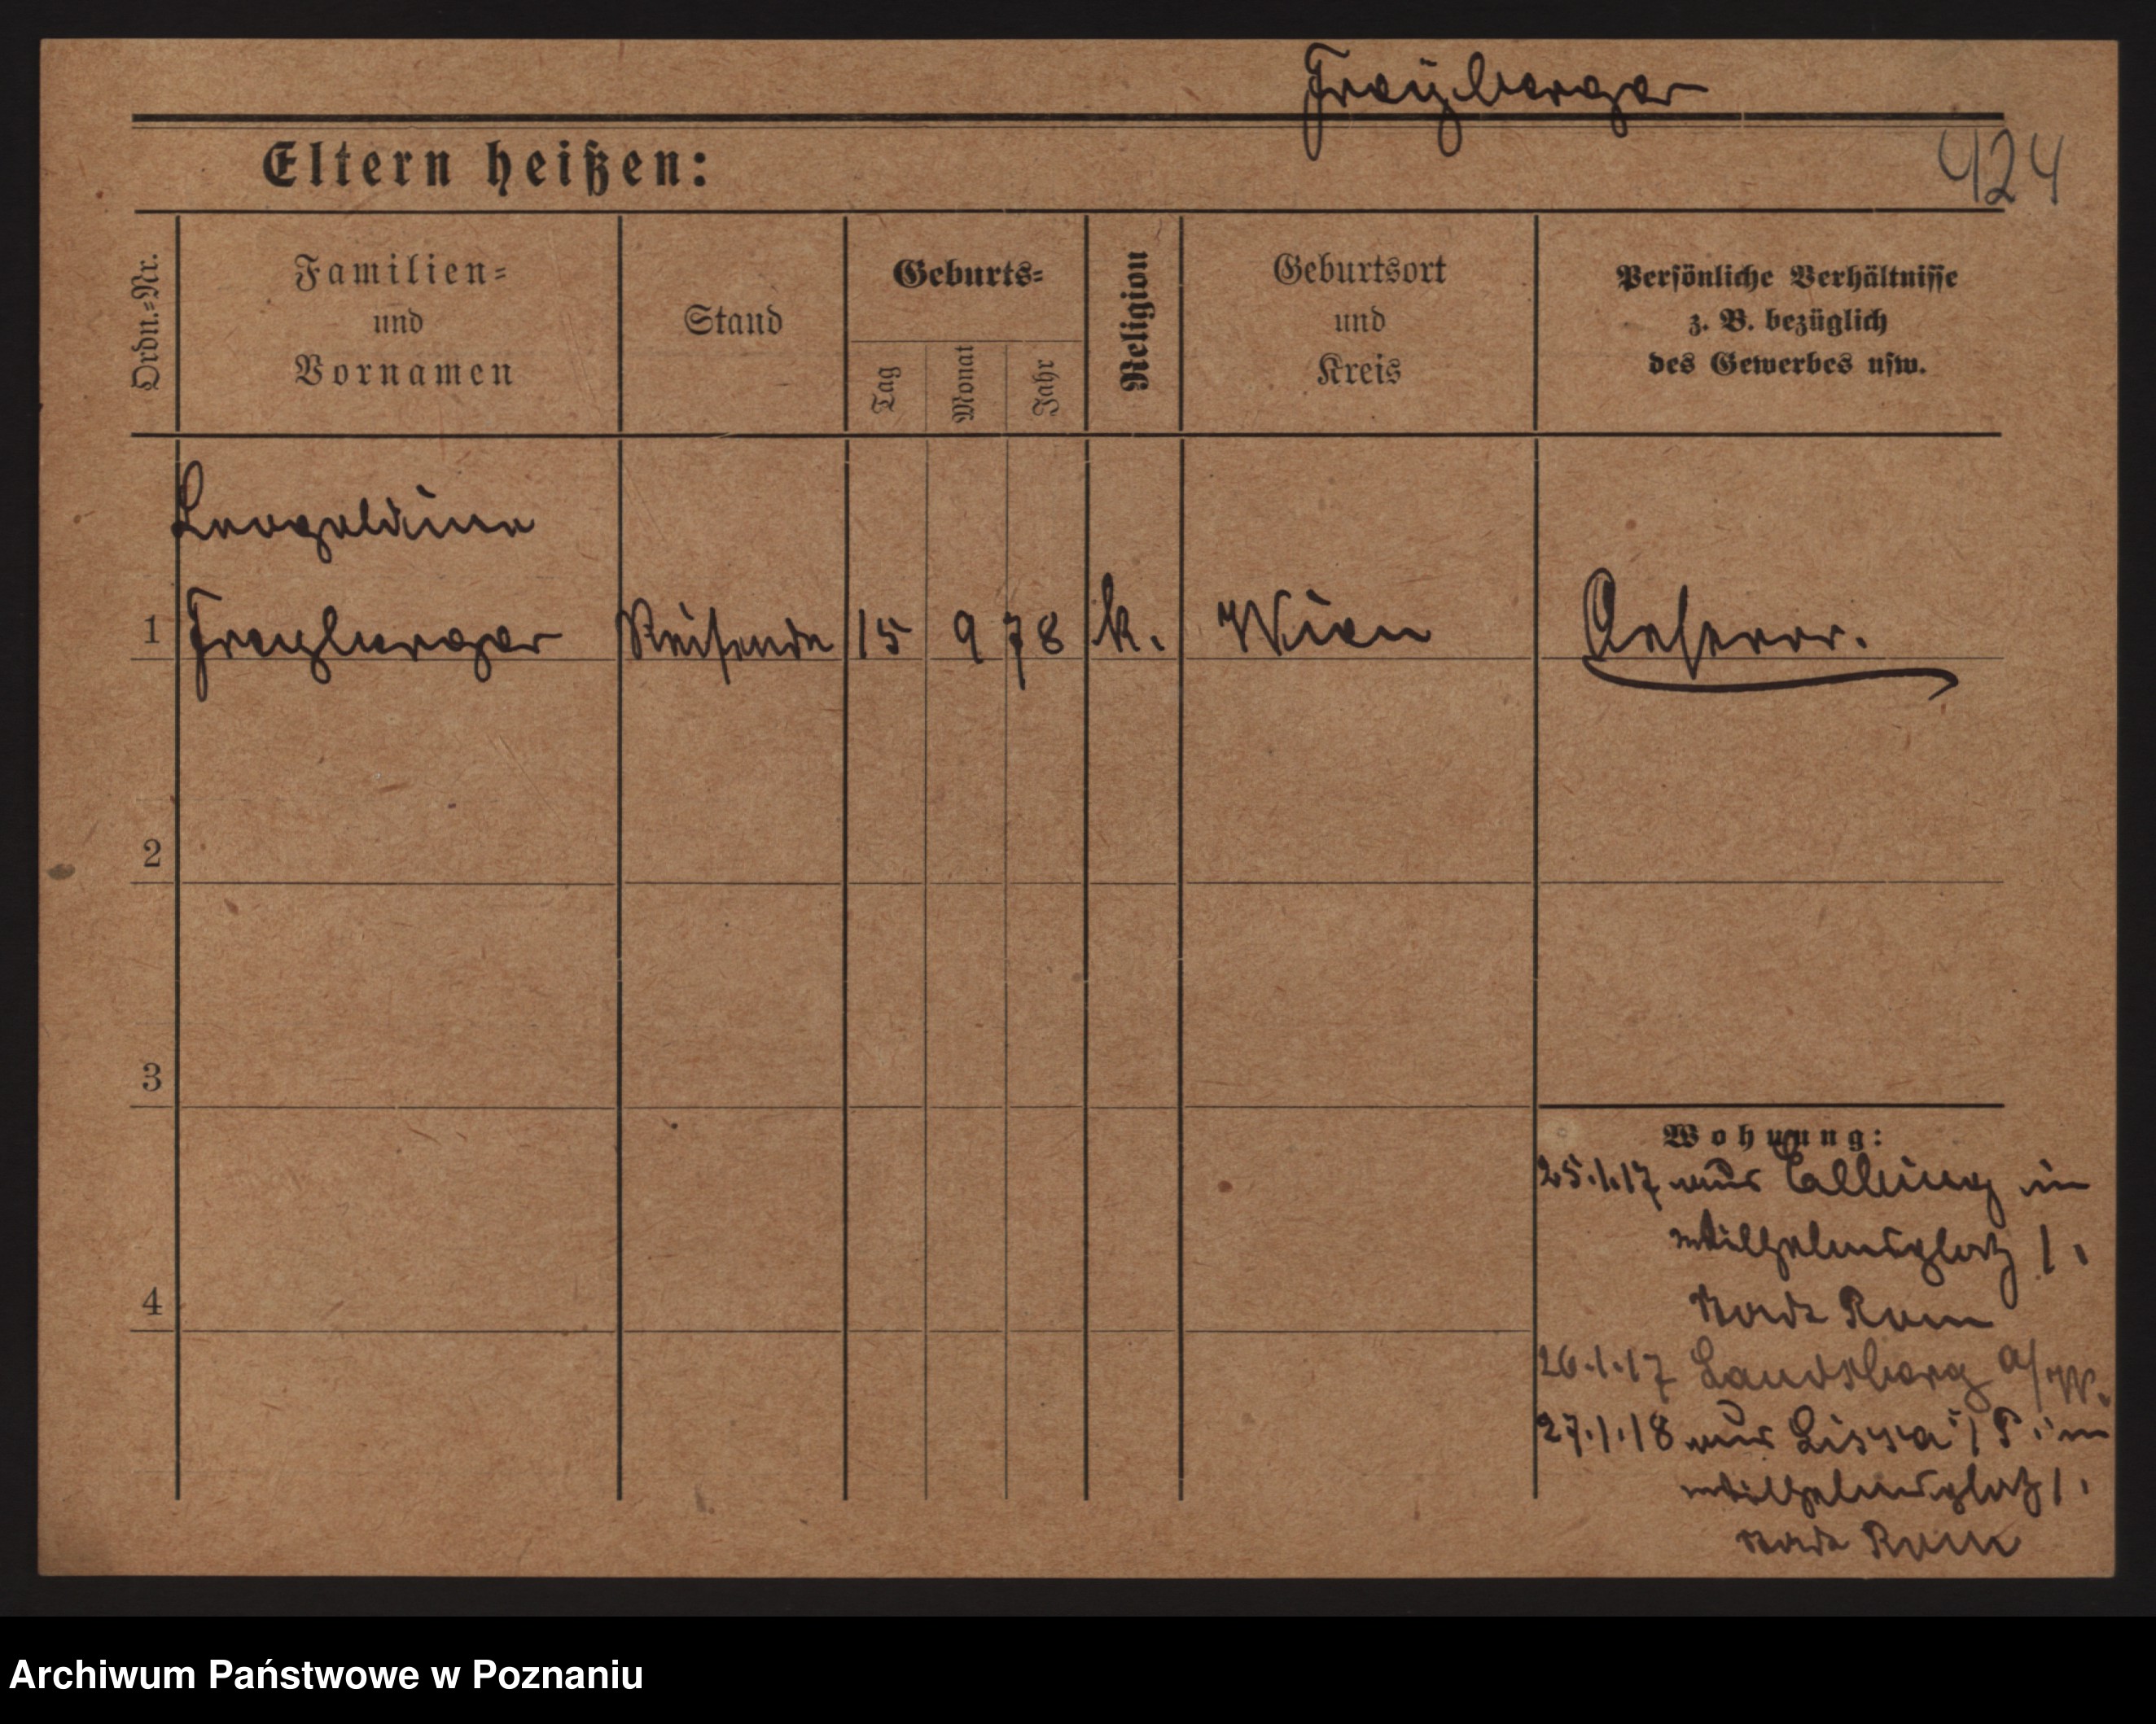 Freyberger
Eltern heißen:
424
Ordn.=Nr.
Familien=
und
Vornamen
Stand
Geburts=
Tag
Monat
Jahr
Religion
Geburtsort
und
Kreis
Persönliche Verhältnisse
z. B. bezüglich
des Gewerbes usw.
Leopoldine
1 Freyberger Reisende 15 9 78 k. Wien Oesterr.
2
3
4
Wohnung:
25.1.17 aus in
Wilhelmsplatz 1.
Hotel Rom
26.1.17 Landsberg a/W.
27.1.18 aus Lissa i/P. in
Wilhelmsplatz 1.
Hotel Rom
Archiwum Państwowe w Poznaniu